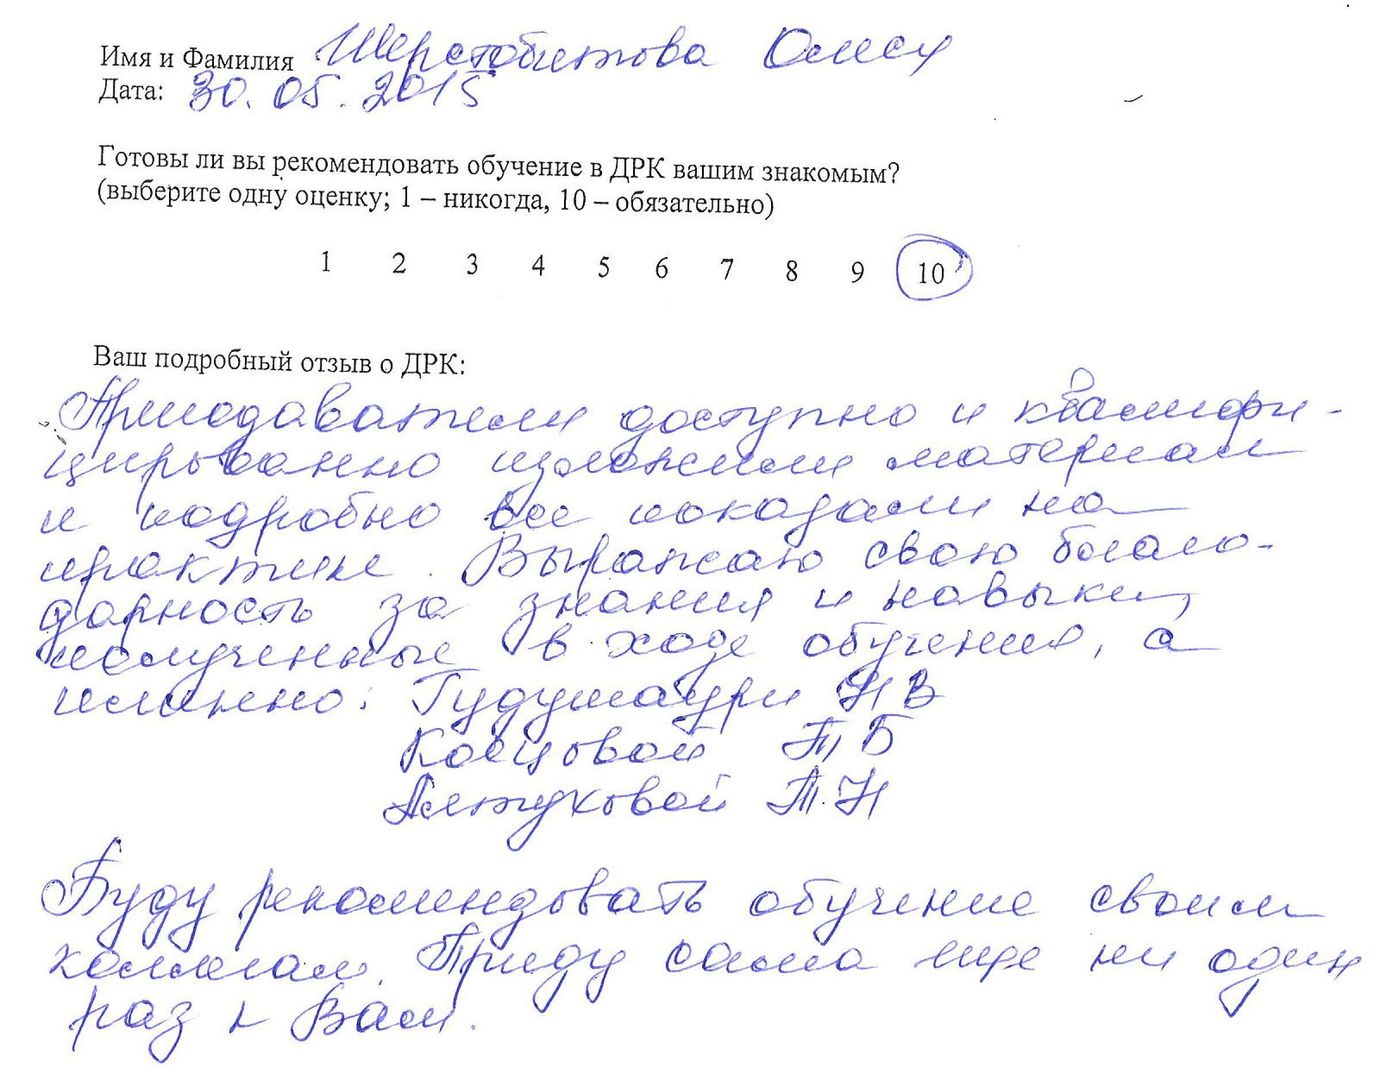 Имя и Фамилия Шерстобитова Олеся
Дата: 30.05.2015
Готовы ли вы рекомендовать обучение в ДРК вашим знакомым?
(выберите одну оценку; 1 – никогда, 10 – обязательно)
1 2 3 4 5 6 7 8 9 10
Ваш подробный отзыв о ДРК:
Преподаватели доступно и квалифи-
цировано изложили материал
и подробно все показали на
практике. Выражаю свою благо-
дарность за знания и навыки,
полученные в ходе обучения, а
именно: Гудушаури Н В
Косцовой Т Б
Алтуховой Т.Н
Буду рекомендовать обучение своим
коллегам. Приду сама еще ни один
раз к Вам.